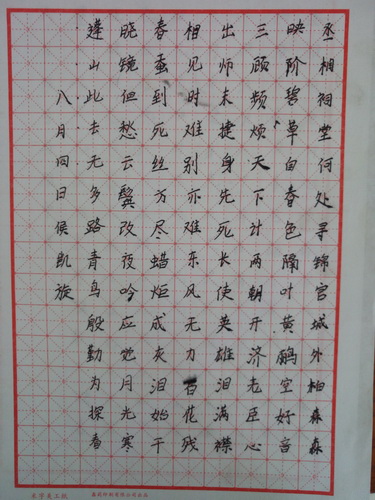 丞相祠堂何处寻锦官城外柏森森
映阶碧草自春色隔叶黄鹂空好音
三顾频烦天下计两朝开济老臣心
出师未捷身先死长使英雄泪满襟
相见时难别亦难东风无力百花残
春蚕到死丝方尽蜡炬成灰泪始干
晓镜但愁云鬓改夜吟应觉月光寒
蓬山此去无多路青鸟殷勤为探看
八月四日侯凯旋